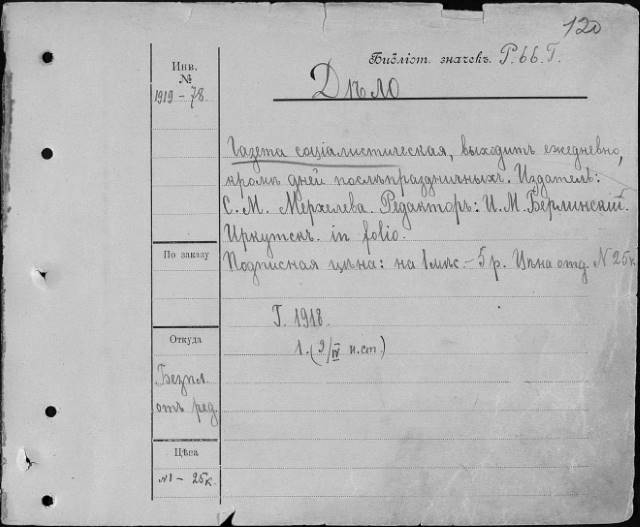 120
Библіот. значекъ Р.66.Г.
Инв.
№
1919-78
Дѣло
Газета соціалистическая, выходитъ ежедневно,
кромѣ дней послѣпраздничныхъ. Издатель:
С. М. Мерхелева. Редакторъ: И. М. Берлинскій.
Иркутскъ. in folio.
По заказу
Подписная цѣна: на 1 мѣс.-5 р. Цѣна отд. N 25 к.
Г. 1918.
1. (9/IV н.ст.)
Откуда
Безпл.
отъ ред.
Цѣна
№1-25к.